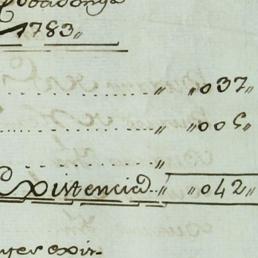 1783„
„ „037„
„ „005„
„
Existencia „ „042„